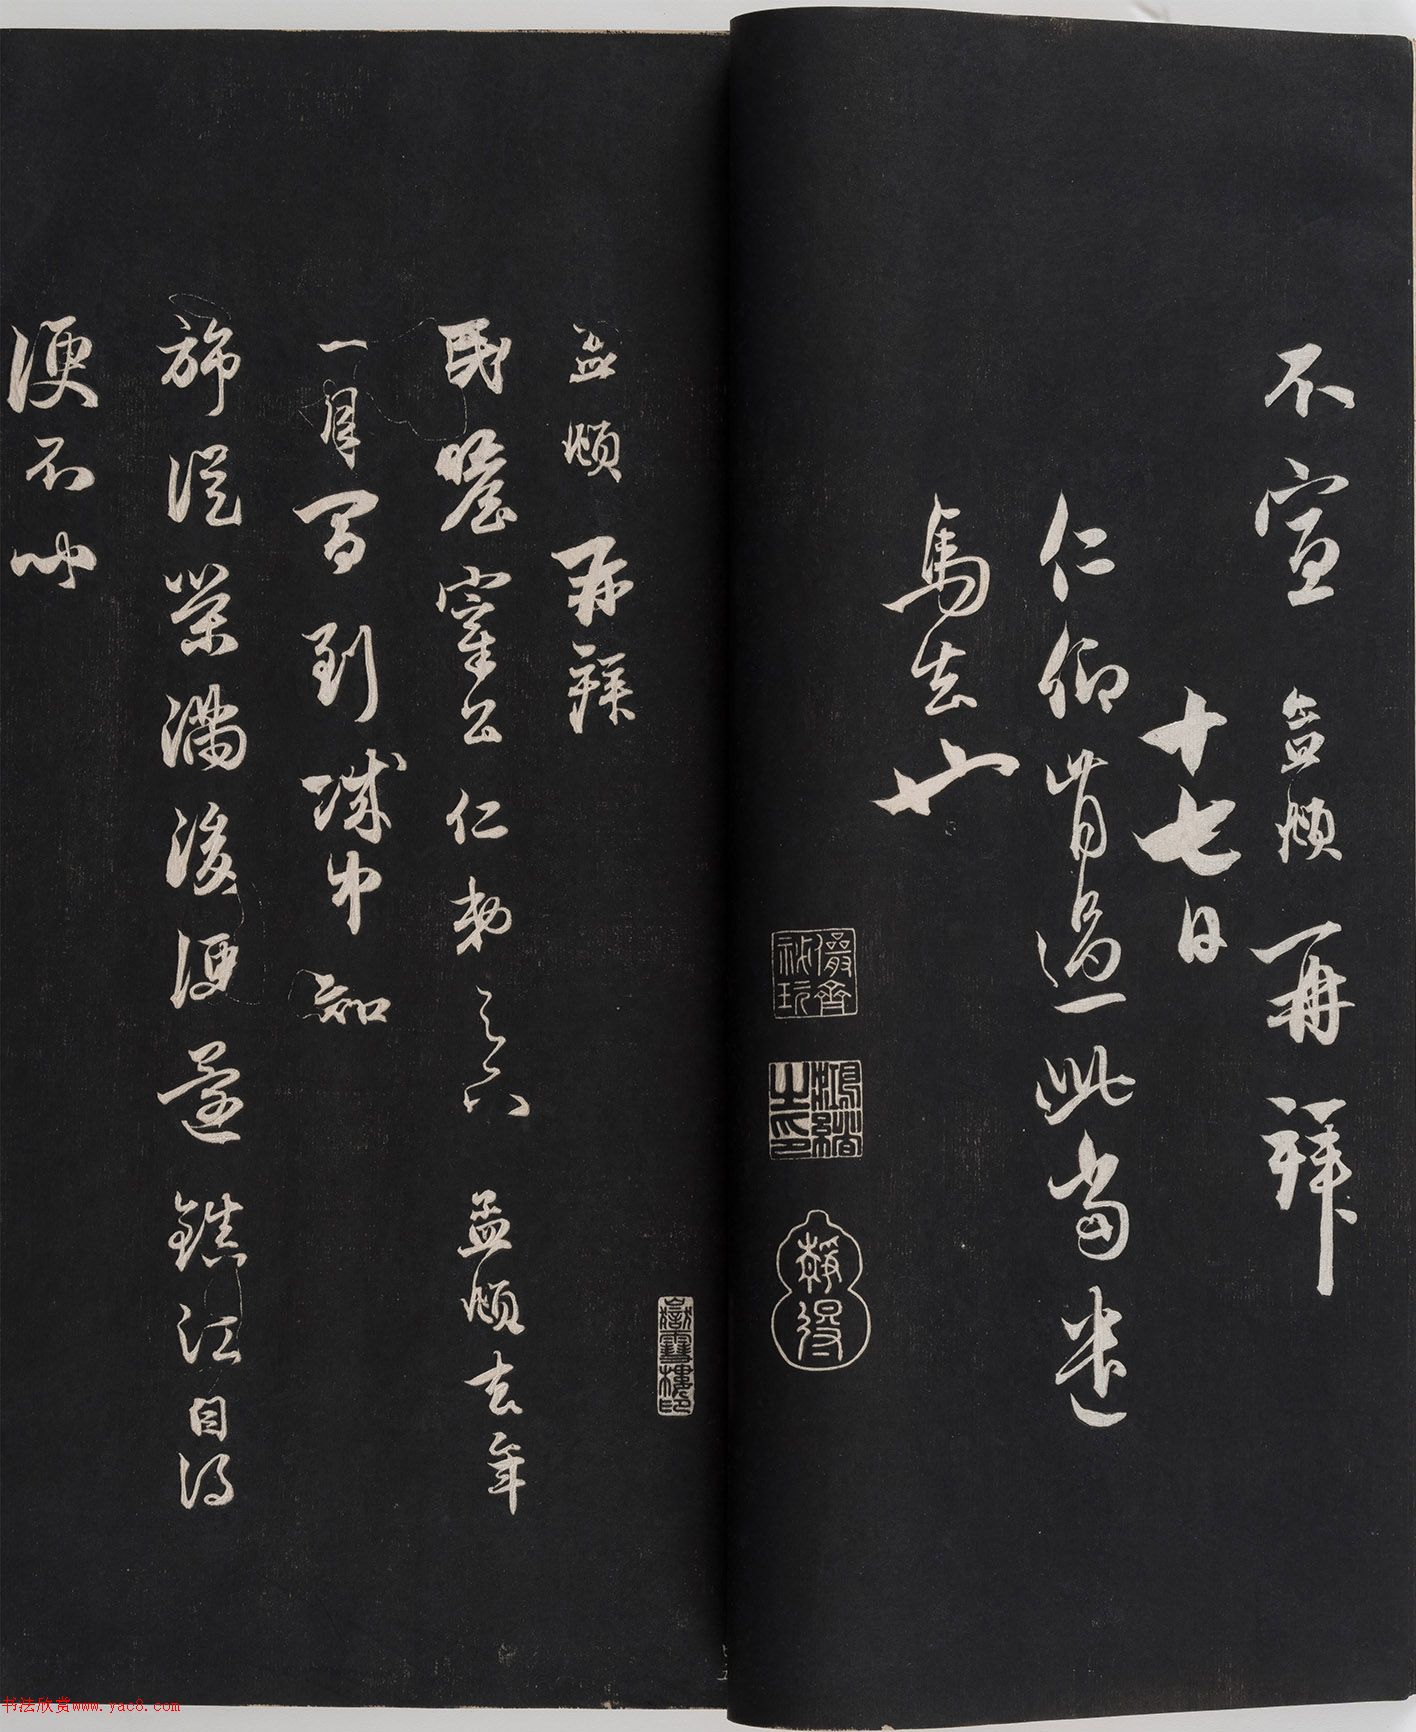 不宣 孟頫再拜
十七日
仁仰肯過此當遣
馬去也
孟頫再拜
民瞻宰公仁弟足下 孟頫去年
一月間到城中知
旆從榮滿後便還鎮江自後
便不聞
嶽雪樓印
書法欣赏www.yac8.com